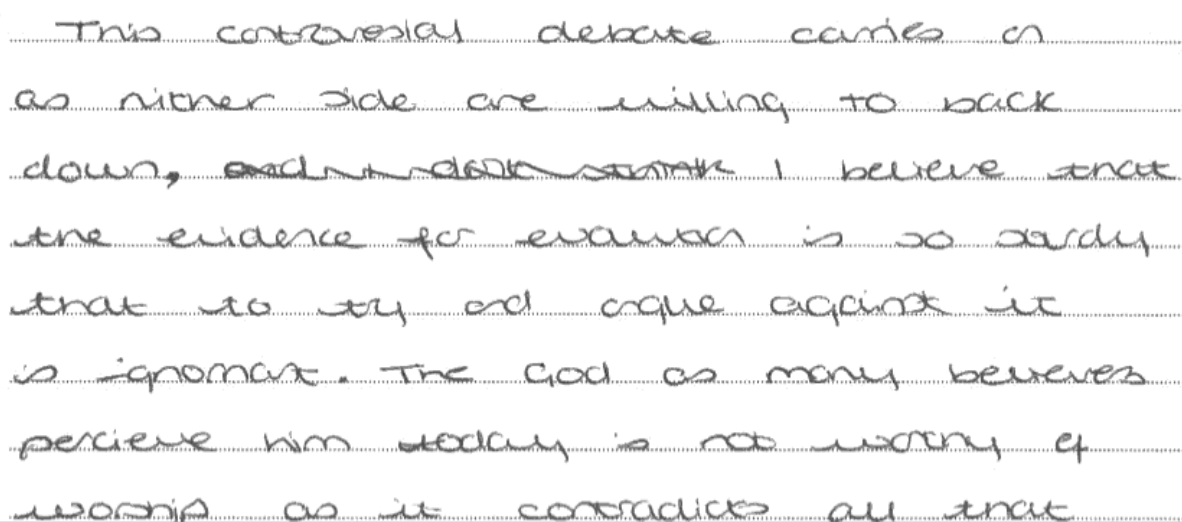 This controvesial debate carries on
as nither side are willing to back
down, I believe that
the evidence for evolution is so sturdy
that to try and argue against it
is ignornant. The God as many believes
percieve him today is not worthy of
worship as it contradicts all that